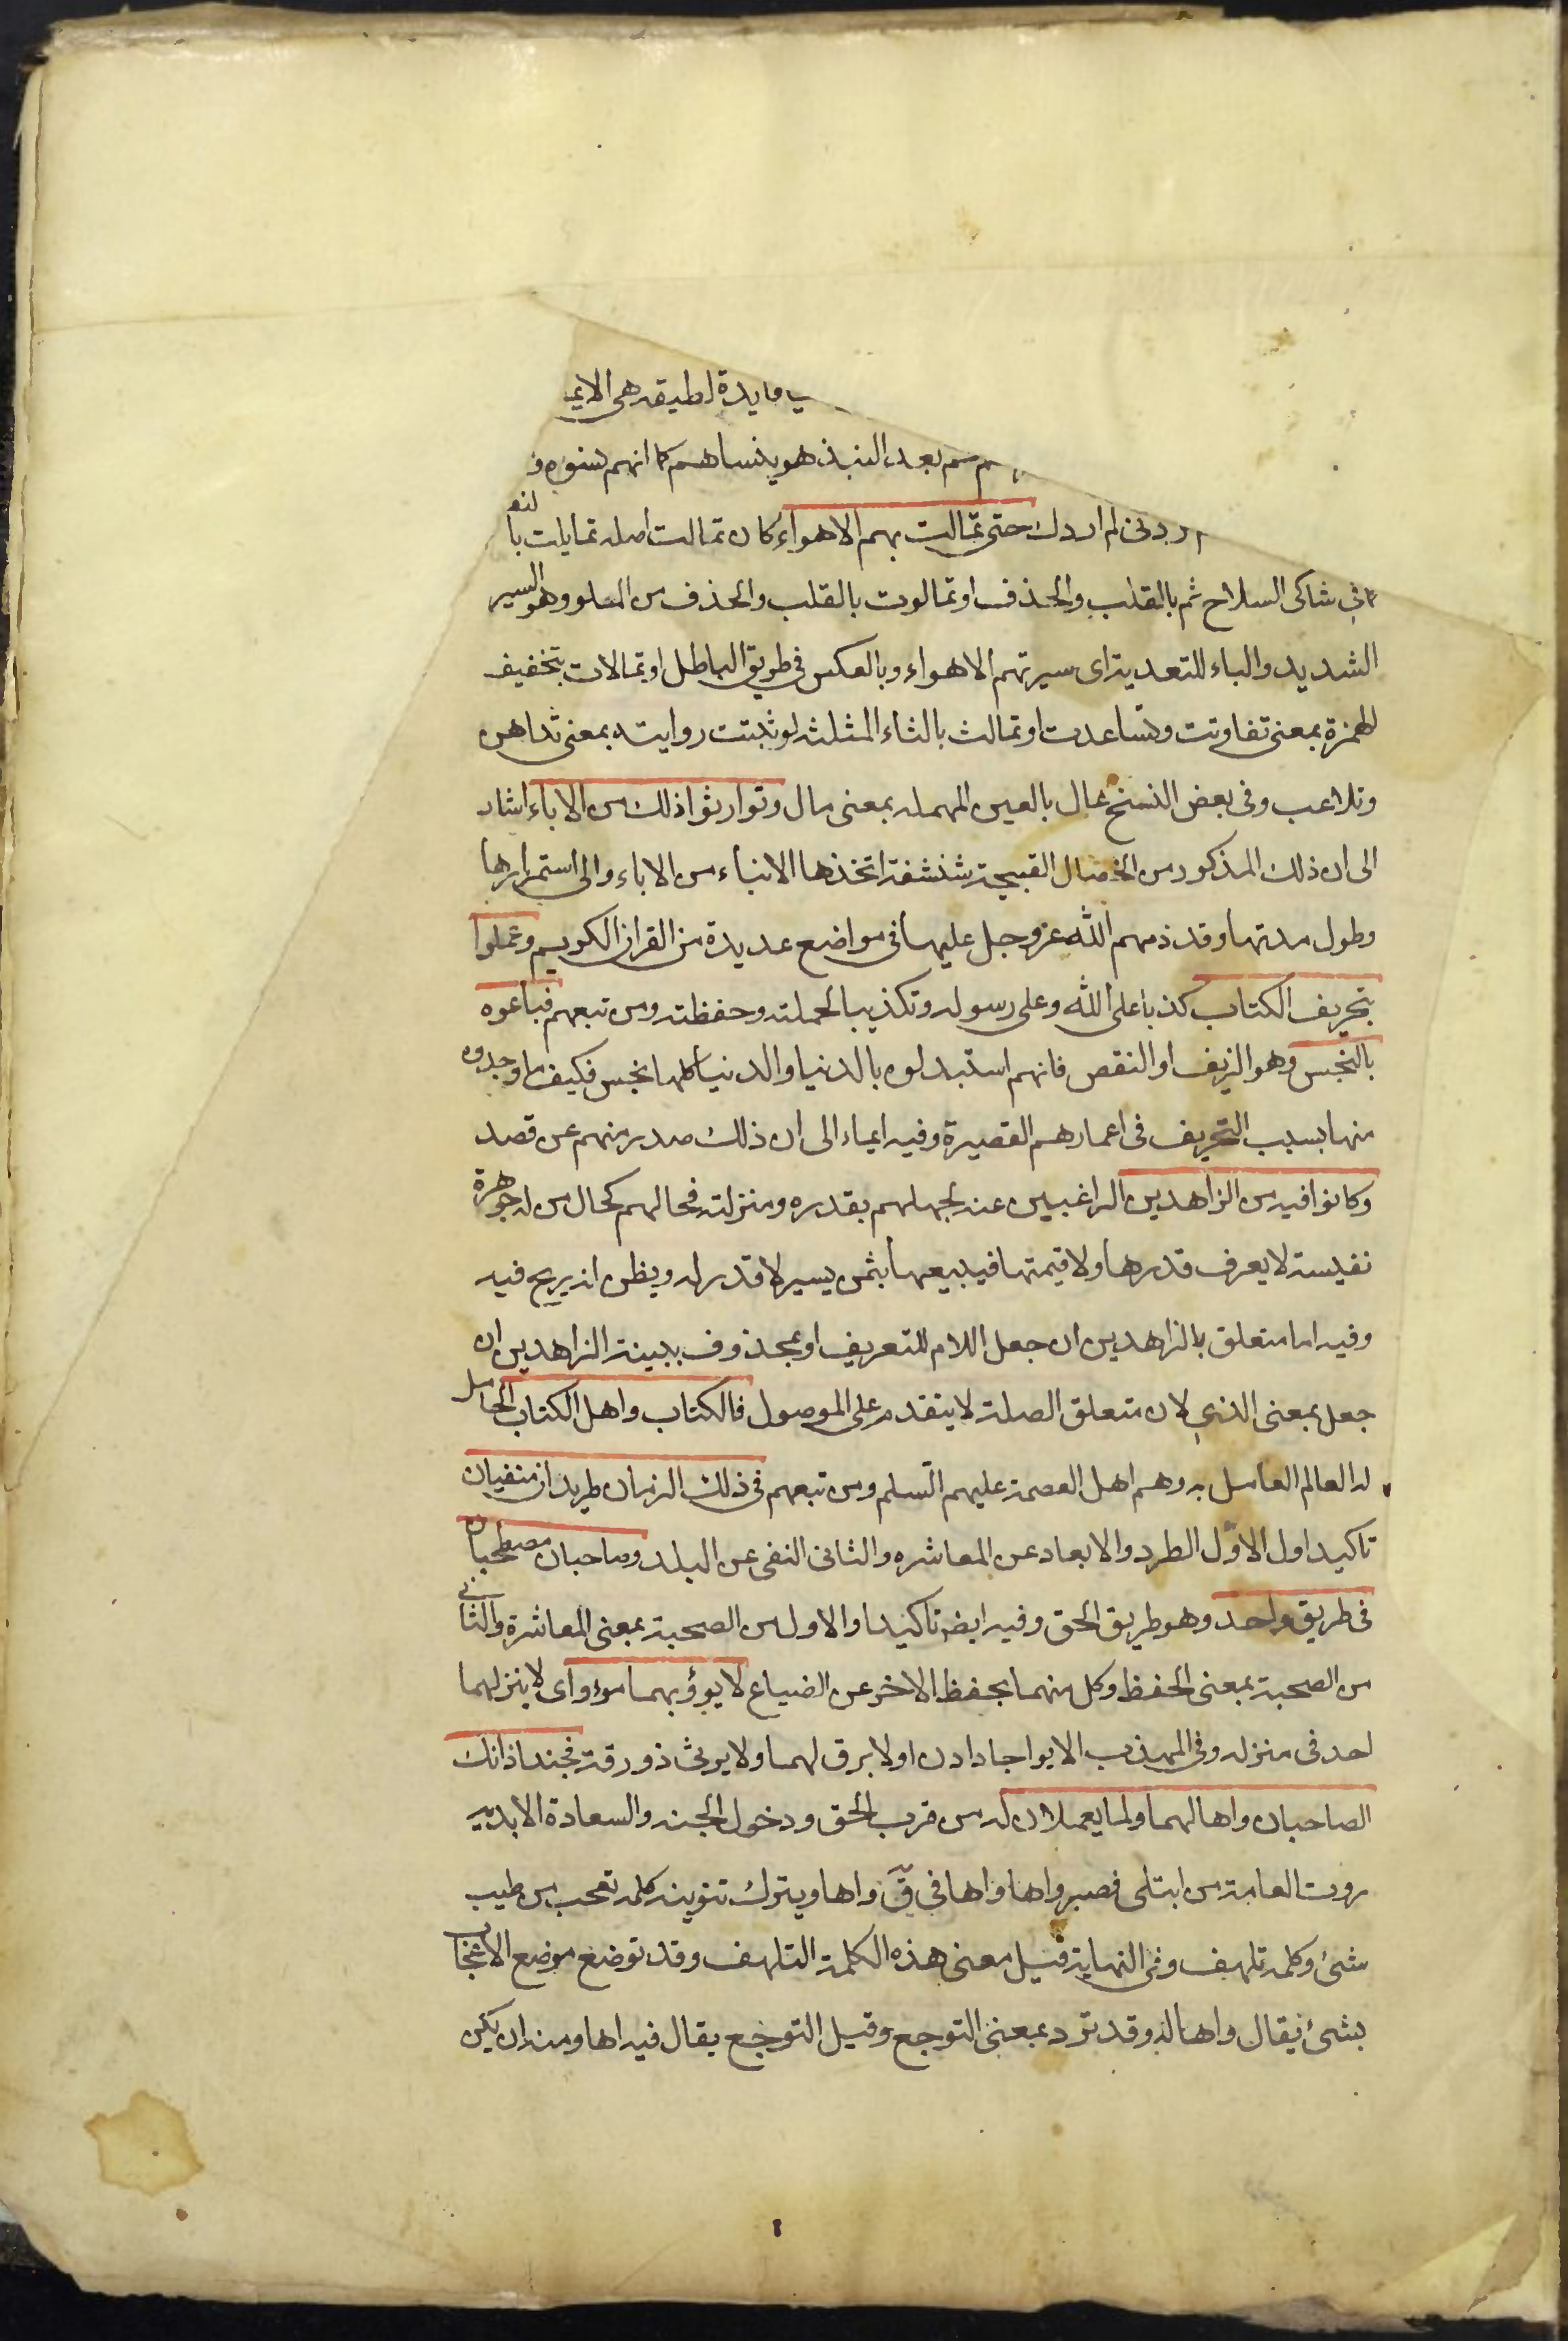 فايدة لطيفة هى الايما
بعد النبذ هو ينساهم كما انهم نسوه و
لم ار دك حتى تمالت بهم الاهواء كان تمالت اصله تمايلت با لنو
فى شاكى السلاح ثم بالقلب والحذف او تمالوت بالقلب والحذف من الملو وهو السير
الشديد والباء للتعدية اى سيرتهم الاهواء وبالعكس فى طريق الباطل او تمالات بتخفيف
الهمزة بمعنى تفاوتت وتساعدت او تمالث بالثاء المثلثه لو ثبتت روايته بمعنى تداهن
وتلاعب وفى بعض النسخ عال بالعين المهمله بمعنى مال وتوارثوا ذلك من الاباء اشار
الى ان ذلك المذكور من الخصال القبيحة شنشنة اتخذها الابناء من الاباء والى استمرارها
وطول مدتها وقد ذمهم الله عز وجل عليها فى مواضع عديدة من القران الكريم وعملوا
بتحريف الكتاب كذبا على الله وعلى رسوله وتكذيبا لحملته وحفظته ومن تبعهم فباعوه
بالبخس وهو الزيف او النقص فانهم استبدلوه بالدنيا والدنيا كلها بخس فكيف ما وجدوه
منها بسبب التحريف فى اعمارهم القصيرة وفيه ايماء الى ان ذلك صدر منهم عن قصد
وكانوا فيه من الزاهدين الراغبين عنه لجهلهم بقدره ومنزلته فحالهم كحال من له جوهرة
نفيسة لا يعرف قدرها ولا قيمتها فيبيعها بثمن يسير لا قدر له ويظن انه يربح فيه
وفيه اما متعلق بالزاهدين ان جعل اللام للتعريف او بمحذوف يبينه الزاهدين ان
جعل بمعنى الذي لان متعلق الصلة لا يتقدم على الموصول فالكتاب واهل الكتاب الحامل
له العالم العامل به وهم اهل العصمة عليهم السلم ومن تبعهم فى ذلك الزمان طريدان منفيان
تاكيد اول الاول الطرد والابعاد عن المعاشره والثانى النفى عن البلد وصاحبان مصطحبان
فى طريق واحد وهو طريق الحق وفيه ايضا تاكيد او الاول من الصحبة بمعنى المعاشرة والثانى
من الصحبة بمعنى الحفظ وكل منهما يحفظ الاخر عن الضياع لا يؤويهما مؤو اى لا ينزلهما
احد فى منزله وفى المهذب الايوا جا دادن او لا يرق لهما ولا يرثى ذو رقة فحبذا ذانك
الصاحبان واها لهما ولما يعملان له من قرب الحق ودخول الجنه والسعادة الابديه
روت العامة من ابتلى فصبر واها واها فى ق واها ويترك تنوينه كلمه تعجب من طيب
شئ وكلمه تلهف وفى النهاية قيل معنى هذه الكلمة التلهف وقد توضع موضع الاعجاب
بشئ يقال واها له وقد ترد بمعنى التوجع وقيل التوجع يقال فيه اها ومنه ان يكن